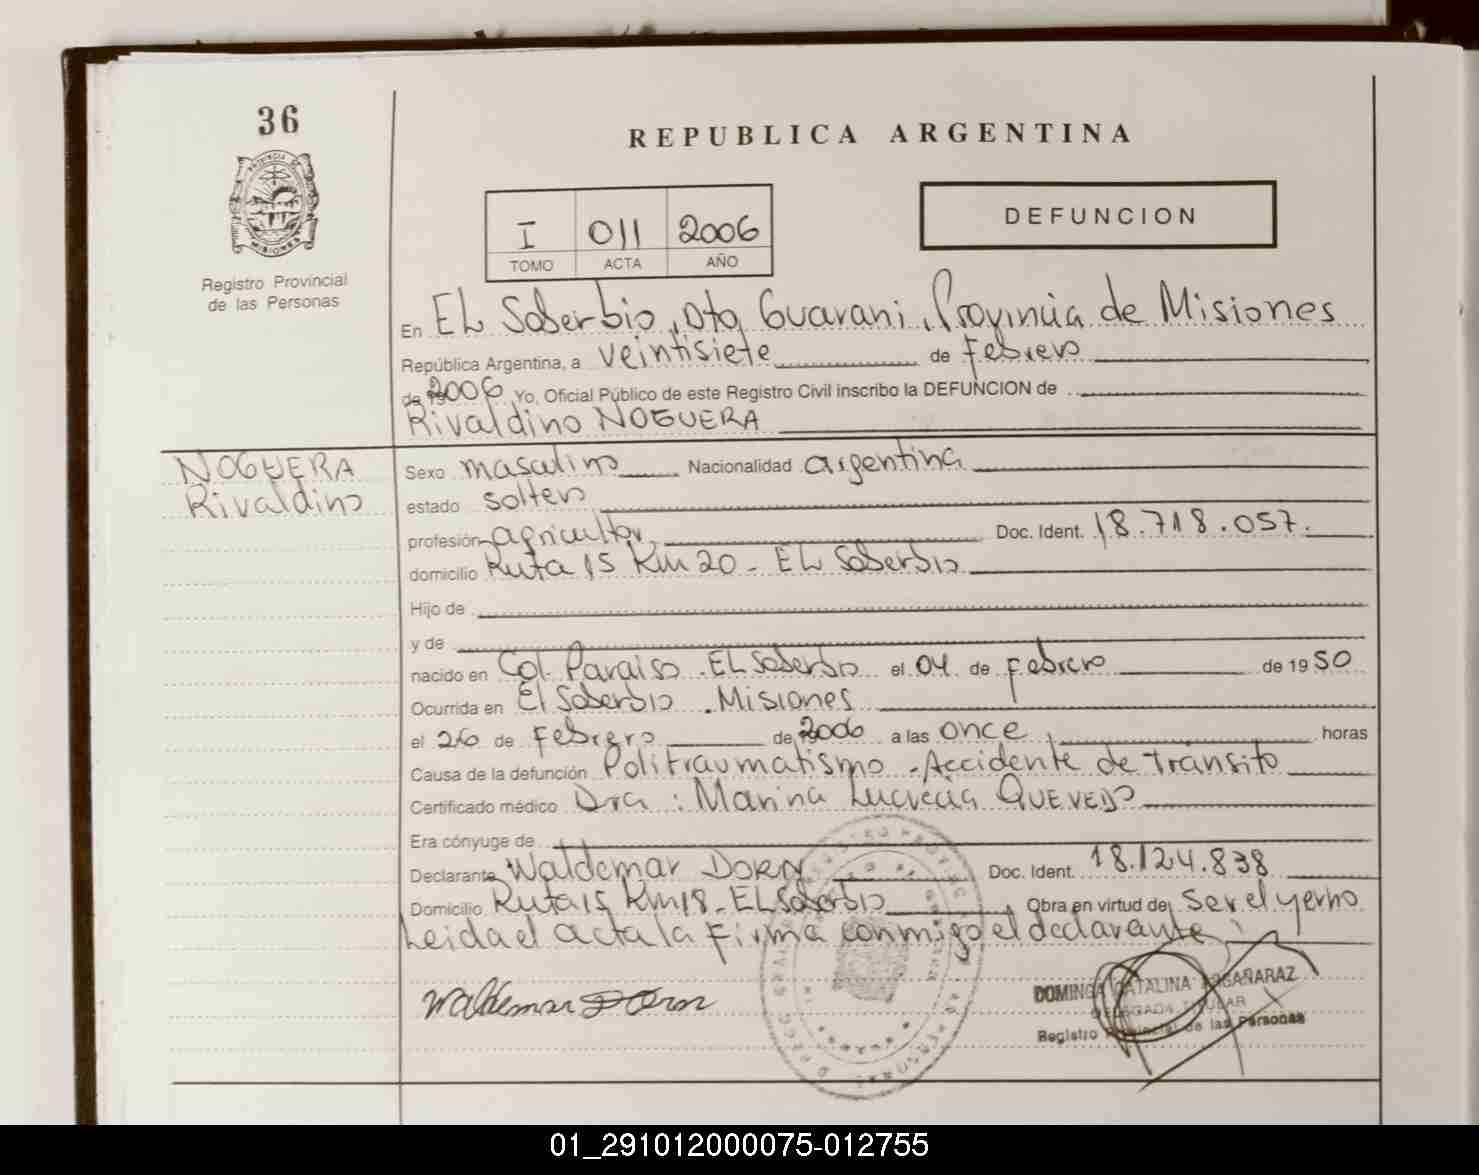 36
REPUBLICA ARGENTINA
PROVINCIA DE MISIONES
Registro Provincial
de las Personas
I 011 2006
TOMO ACTA AÑO
DEFUNCION
En EL Soberbio, Dto Guarani, Provincia de Misiones
República Argentina, a veintisiete de Febrero
de 2006 Yo, Oficial Público de este Registro Civil inscribo la DEFUNCION de
Rivaldino NOGUERA
NOGUERA
Rivaldino
Sexo masculino Nacionalidad argentina
estado soltero
profesión agricultor Doc. Ident. 18.718.057.
domicilio Ruta 15 Km 20 - EL Soberbio
Hijo de
y de
nacido en Col. Paraiso - EL Soberbio el 04 de Febrero de 1950
Ocurrida en El Soberbio - Misiones
el 26 de Febrero de 2006 a las once horas
Causa de la defunción Politraumatismo - Accidente de Transito
Certificado médico Dra : Marina Lucrecia QUEVEDO
Era cónyuge de
Declarante Waldemar DORN Doc. Ident. 18.124.838
Domicilio Ruta 15 Km 18 - EL Soberbio Obra en virtud de ser el yerno
Leida el acta la Firma conmigo el declarante
Waldemar Dorn
DOMINGA CATALINA ARGAÑARAZ
DELEGADA TITULAR
Registro Provincial de las Personas
01_291012000075-012755